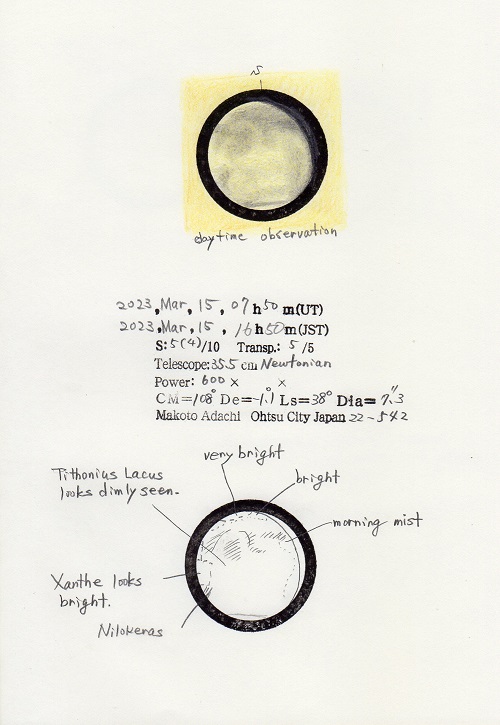 S
daytime observation
2023, Mar, 15, 07 h 50 m(UT)
2023, Mar, 15, 16 h 50 m(JST)
S: 5(4)/10 Transp.: 5 /5
Telescope: 35.5 cm Newtonian
Power: 600 × ×
CM=108° De=-1.1° Ls=38° Dia= 7.3"
Makoto Adachi Ohtsu City Japan 22-542
very bright
Tithonius Lacus
looks dimly seen.
bright
morning mist
Xanthe looks
bright.
Nilokeras